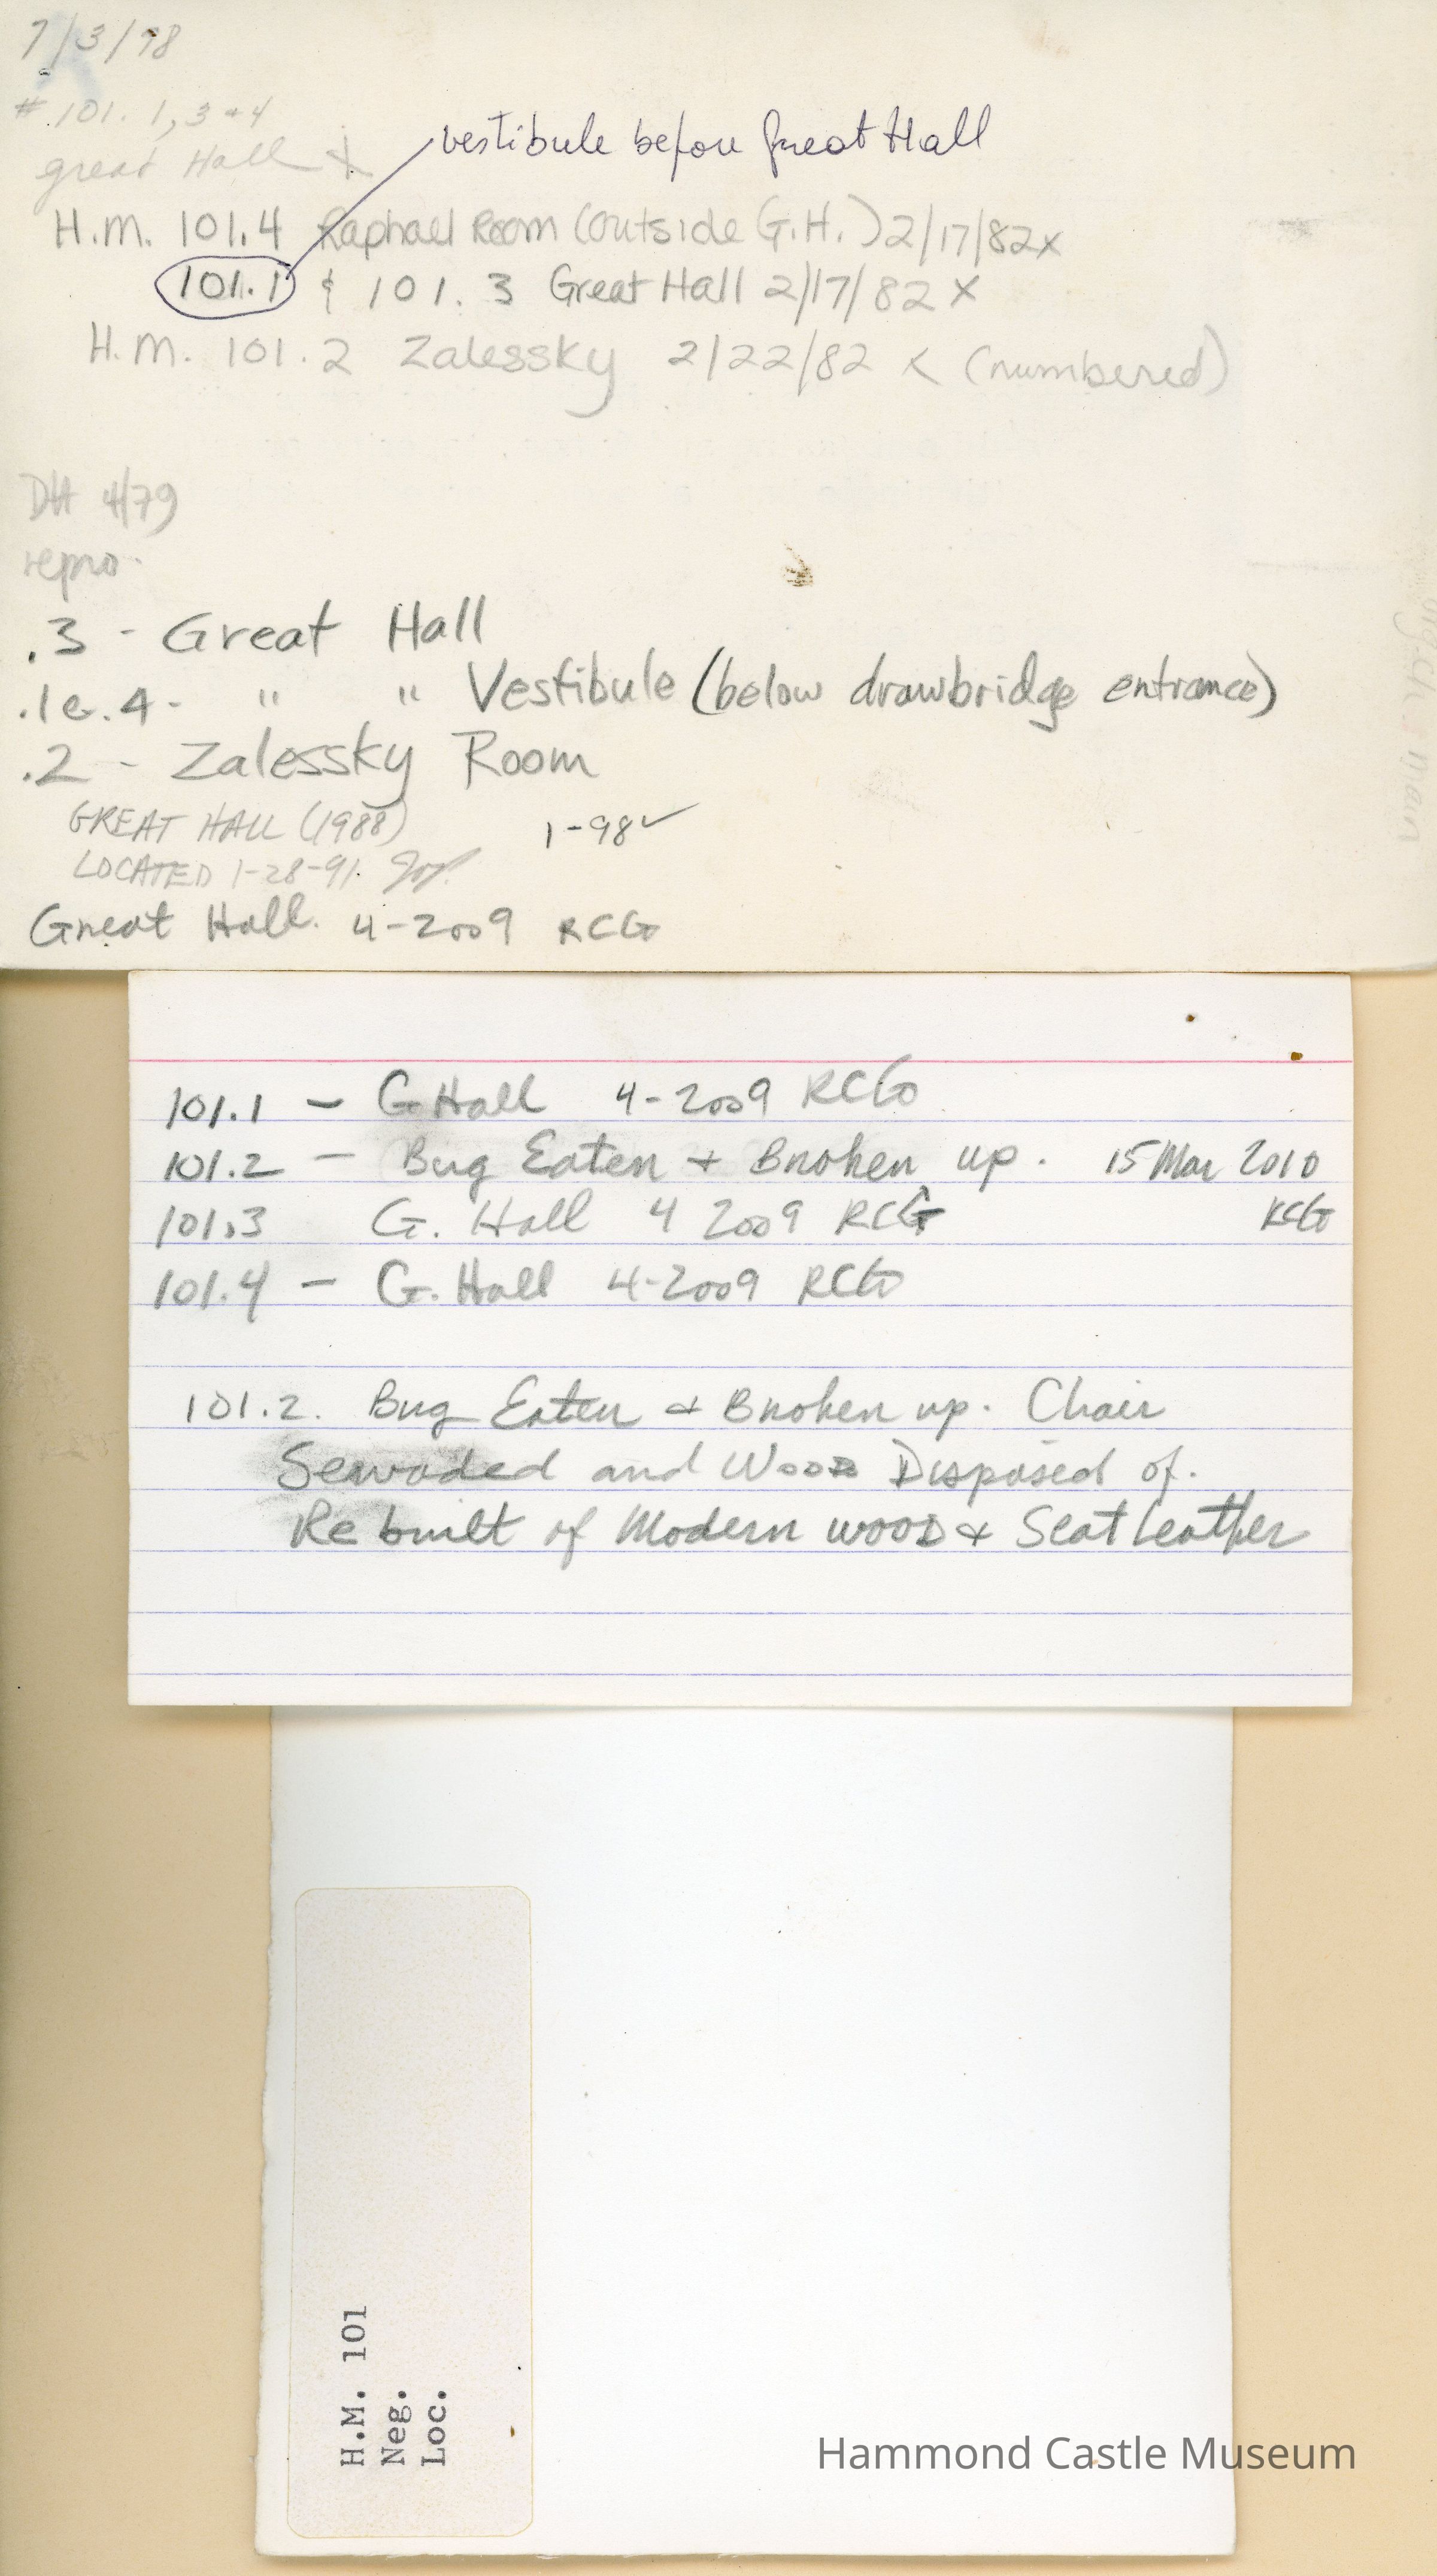 7/3/78
# 101. 1, 3 + 4
great Hall X
vestibule before Great Hall
H.M. 101.4 Raphael Room (outside G.H.) 2/17/82 x
101.1 & 101.3 Great Hall 2/17/82 X
H.M. 101.2 Zalessky 2/22/82 X (numbered)
DH 4/79
repro.
.3 - Great Hall
.1 & .4 - " " Vestibule (below drawbridge entrance)
.2 - Zalessky Room
GREAT HALL (1988) 1-98✓
LOCATED 1-28-91
Great Hall. 4-2009 RCG
main
101.1 – G Hall 4-2009 RCG
101.2 – Bug Eaten + Broken up. 15 Mar 2010
101.3 G. Hall 4 2009 RCG RCG
101.4 – G. Hall 4-2009 RCG
101.2. Bug Eaten + Broken up. Chair
and Wood Disposed of.
Rebuilt of Modern wood + Seat leather
H.M. 101
Neg.
Loc.
Hammond Castle Museum